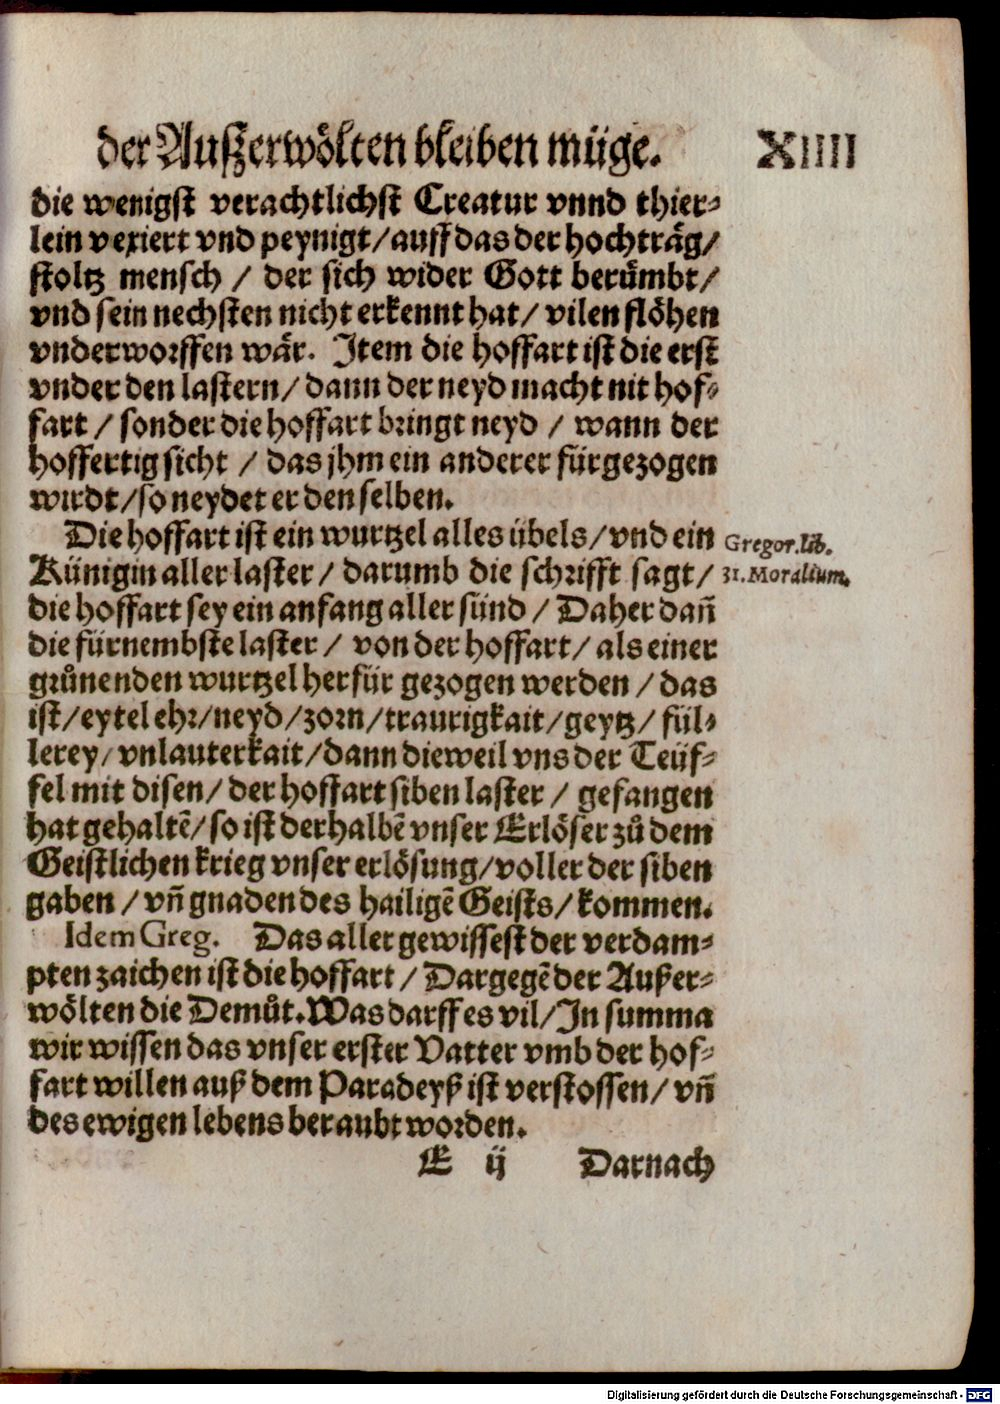 der Auſzerwölten bleiben müge. XIIII
die wenigſt verachtlichſt Creatur vnnd thier⸗
lein vexiert vnd peynigt/auff das der hochträg/
ſtoltz menſch / der ſich wider Gott berůmbt/
vnd ſein nechſten nicht erkennt hat/ vilen flöhen
vnderworffen wär. Item die hoffart iſt die erſt
vnder den laſtern/ dann der neyd macht nit hof⸗
fart / ſonder die hoffart bringt neyd / wann der
hoffertig ſicht / das jhm ein anderer fürgezogen
wirdt/ſo neydet er den ſelben.
Die hoffart iſt ein wurtzel alles übels/ vnd ein
Künigin aller laſter/ darumb die ſchrifft ſagt/
die hoffart ſey ein anfang aller ſünd / Daher dañ
die fürnembſte laſter/ von der hoffart/ als einer
grůnenden wurtzel herfür gezogen werden / das
iſt/eytel ehr/neyd/zorn/traurigkait/geytz/ fül⸗
lerey/vnlauterkait/dann dieweil vns der Teüf⸗
fel mit diſen/ der hoffart ſiben laſter / gefangen
hat gehaltẽ/ſo iſt derhalbẽ vnſer Erlöſer zů dem
Geiſtlichen krieg vnſer erlöſung/voller der ſiben
gaben / vñ gnaden des hailigẽ Geiſts/ kommen.
Idem Greg. Das aller gewiſſeſt der verdam⸗
pten zaichen iſt die hoffart / Dargegẽ der Außer⸗
wölten die Demůt. Was darff es vil/In ſumma
wir wiſſen das vnſer erſter Vatter vmb der hof⸗
fart willen auß dem Paradeyß iſt verſtoſſen/ vñ
des ewigen lebens beraubt worden.
E ij Darnach
Gregor. lib.
31. Moralium.
Digitalisierung gefördert durch die Deutsche Forschungsgemeinschaft - DFG